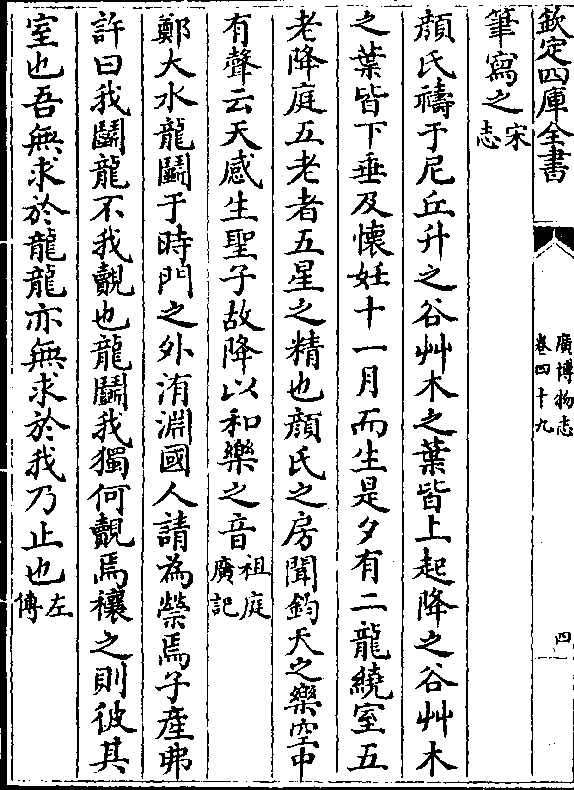 欽定四庫全書
廣博物志
卷四十九
四
筆寫之宋志
顔氏禱于尼丘升之谷艸木之葉皆上起降之谷艸木
之葉皆下垂及懷妊十一月而生是夕有二龍繞室五
老降庭五老者五星之精也顔氏之房聞鈞天之樂空中
有聲云天感生聖子故降以和樂之音祖庭廣記
鄭大水龍鬭于時門之外洧淵國人請為禜焉子產弗
許曰我鬭龍不我覿也龍鬭我獨何覿焉禳之則彼其
室也吾無求於龍龍亦無求於我乃止也左傳